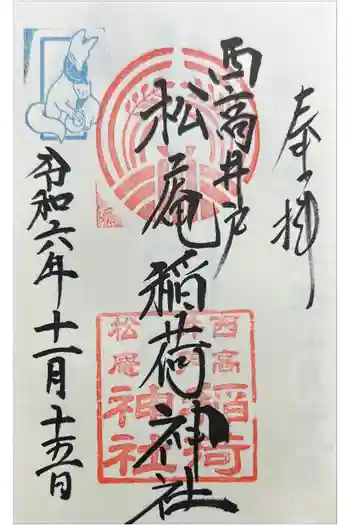 奉拝
西高井戸
松庵稲荷神社
令和六年十一月十五日
西高
稲荷
松庵
神社